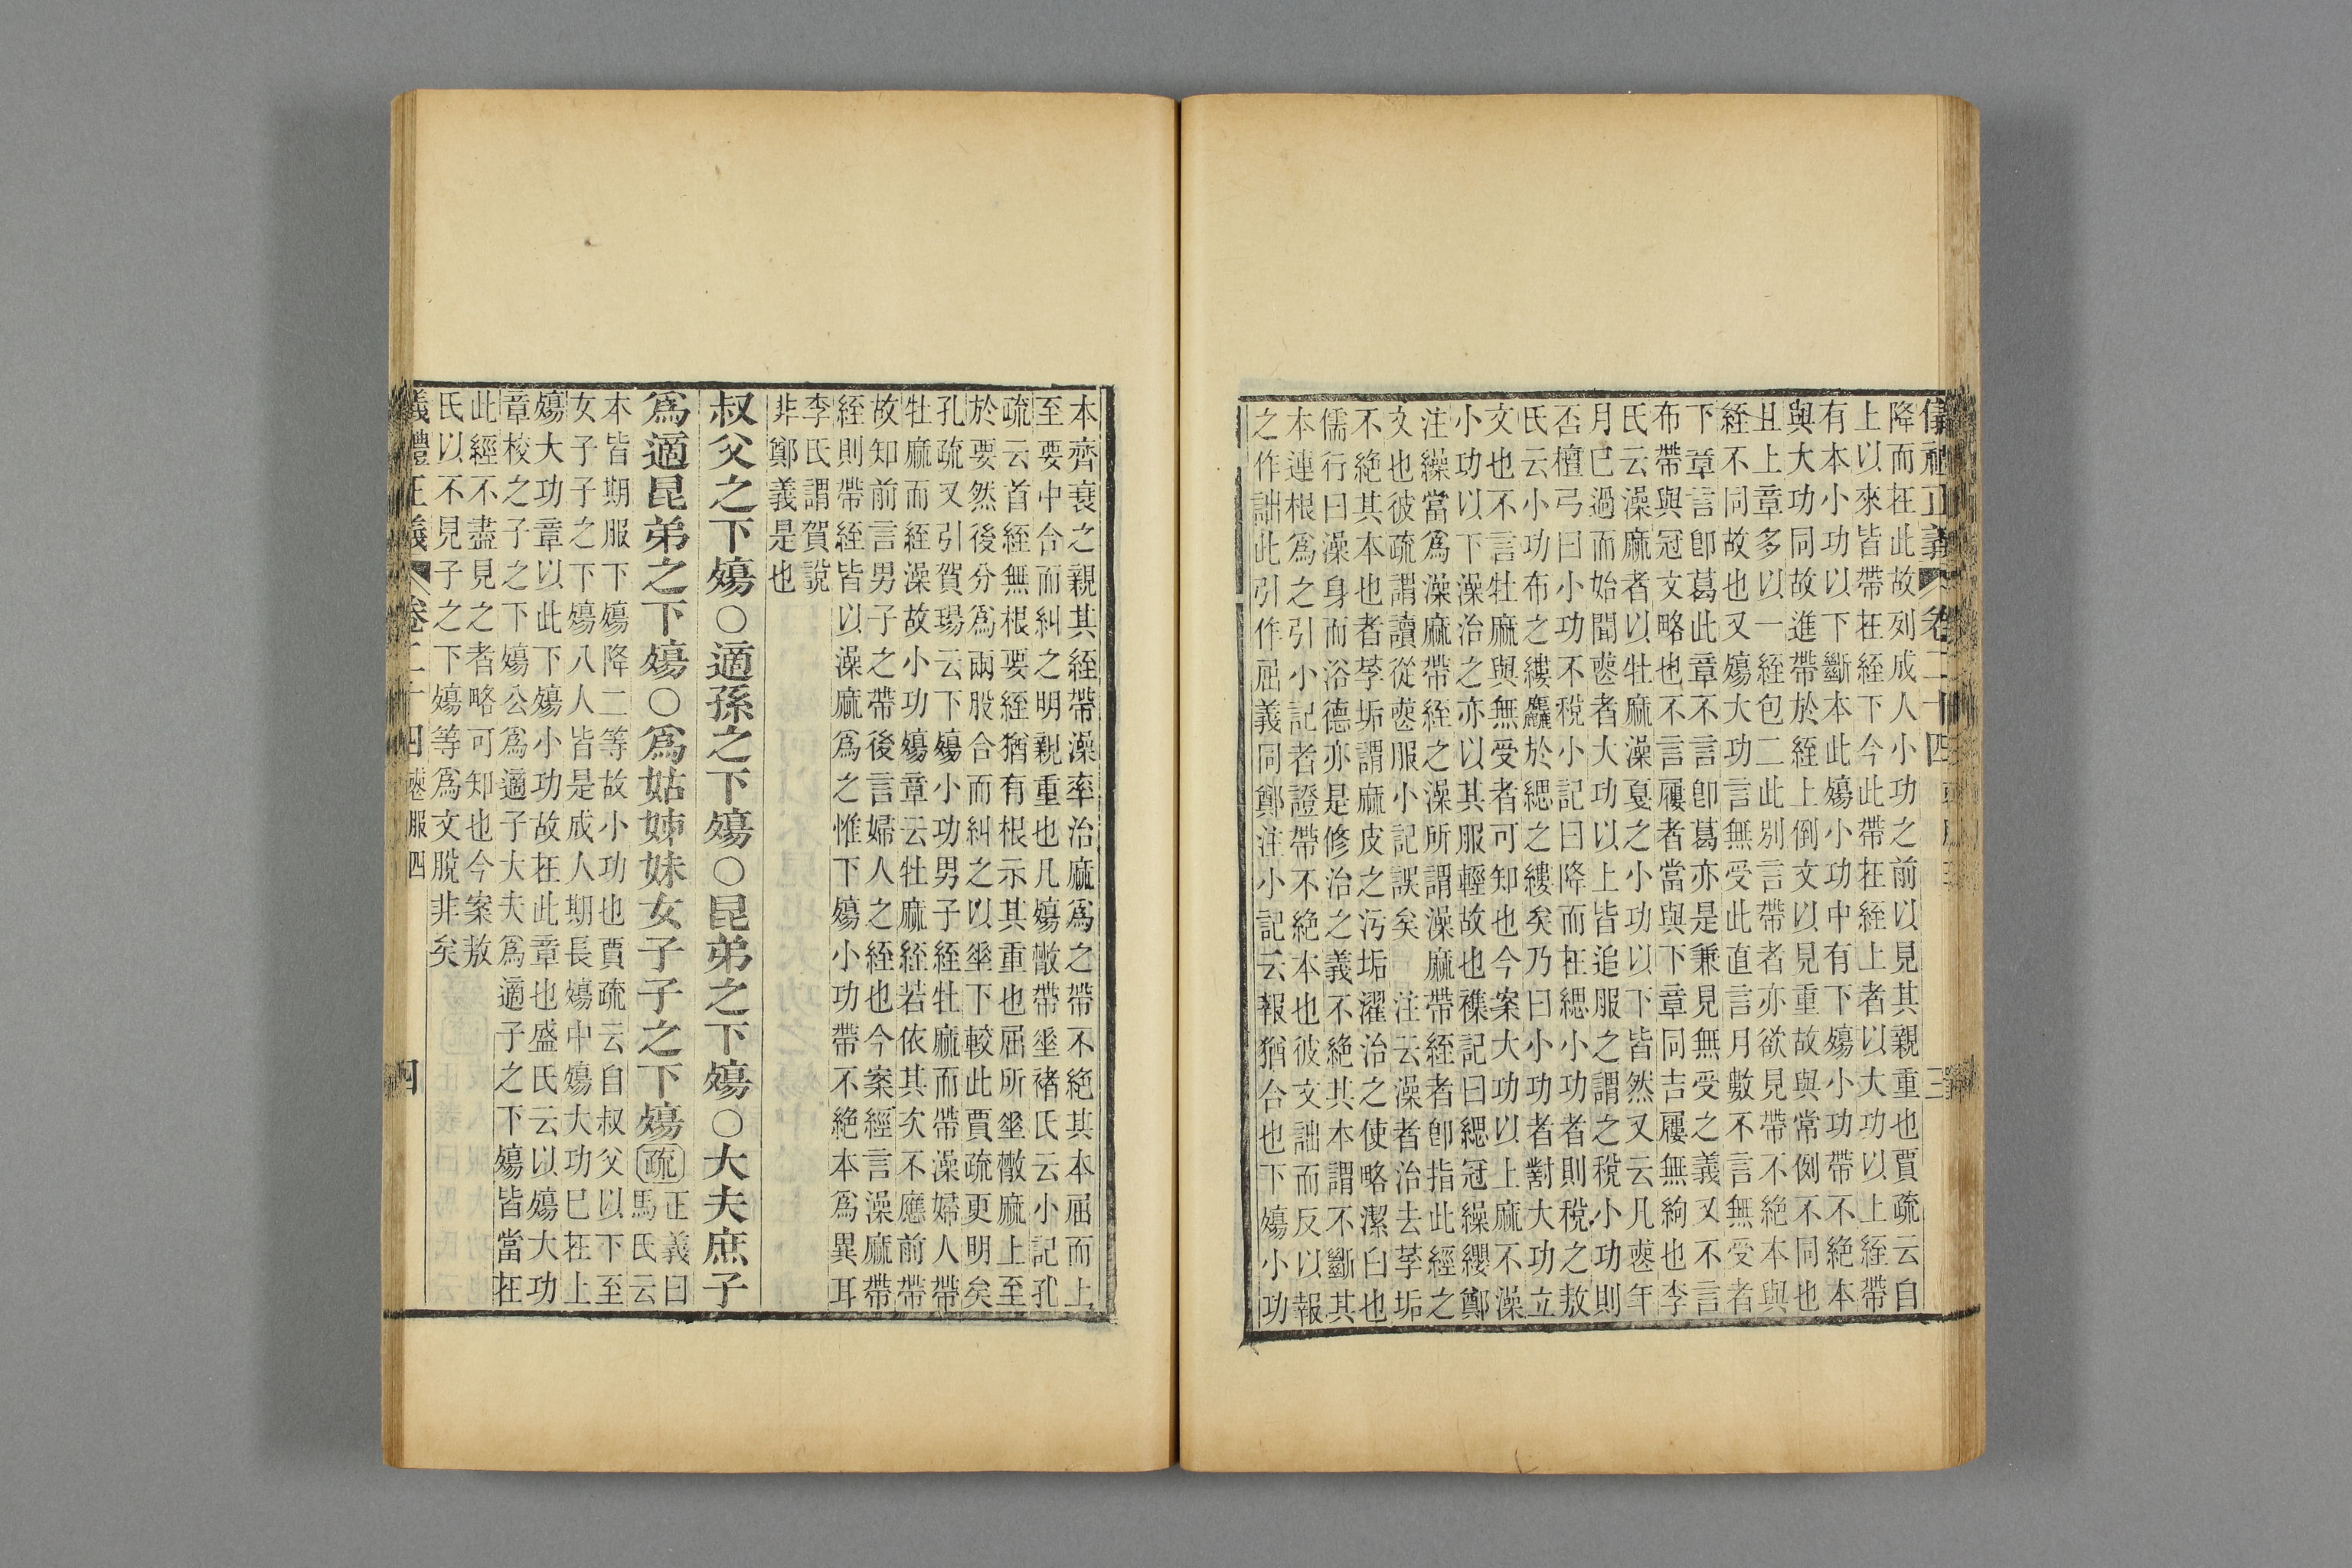 儀禮正義 卷二十四 喪服 三
降而在此故列成人小功之前以見其親重也賈疏云自
上以來皆帶在絰下今此帶在絰上者以大功以上絰帶
有本小功以下斷本此殤小功中有下殤小功帶不絕本
與大功同故進帶於絰上倒文以見重故與常例不同也
且上章多以一絰包二此別言帶者亦欲見帶不絕本與
絰不同故也又殤大功言無受此直言月數不言無受者
下章言卽葛此章不言卽葛亦是兼見無受之義又不言
布帶與冠文略也不言屨者當與下章同吉屨無絇也李
氏云澡麻者以牡麻澡戛之小功以下皆然又云凡喪年
月已過而始聞喪者大功以上皆追服之謂之稅小功則
否檀弓曰小功不稅小記曰降而在緦小功者則稅之敖
氏云小功布之縷麤於緦之縷矣乃曰小功者對大功立
文也不言牡麻與無受者可知也今案大功以上麻不澡
小功以下澡治之亦以其服輕故也襍記曰緦冠繰纓鄭
注繰當爲澡麻帶絰之澡所謂澡麻帶絰者卽指此經之
文也彼疏謂讀從喪服小記誤矣 注云澡者治去莩垢
不絕其本也者莩垢謂麻皮之污垢濯治之使略潔白也
儒行曰澡身而浴德亦是修治之義不絕其本謂不斷其
本連根爲之引小記者證帶不絕本也彼文詘而反以報
之作詘此引作屈義同鄭注小記云報猶合也下殤小功
本齊衰之親其絰帶澡率治麻爲之帶不絕其本屈而上
至要中合而糾之明親重也凡殤散帶垂褚氏云小記孔
疏云首絰無根要絰猶有根示其重也屈所垂散麻上至
於要然後分爲兩股合而糾之以垂下較此賈疏更明矣
孔疏又引賀瑒云下殤小功男子絰牡麻而帶澡婦人帶
牡麻而絰澡故小功殤章云牡麻絰若依其次不應前帶
故知前言男子之帶後言婦人之絰也今案經言澡麻帶
絰則帶絰皆以澡麻爲之惟下殤小功帶不絕本爲異耳
李氏謂賀說
非鄭義是也
叔父之下殤○適孫之下殤○昆弟之下殤○大夫庶子
爲適昆弟之下殤○爲姑姊妹女子子之下殤疏正義曰
馬氏云
本皆期服下殤降二等故小功也賈疏云自叔父以下至
女子子之下殤八人皆是成人期長殤中殤大功已在上
殤大功章以此下殤小功故在此章也盛氏云以殤大功
章校之子之下殤公爲適子大夫爲適子之下殤皆當在
此經不盡見之者略可知也今案敖
氏以不見子之下殤等爲文脫非矣
儀禮正義 卷二十四 喪服 四 四